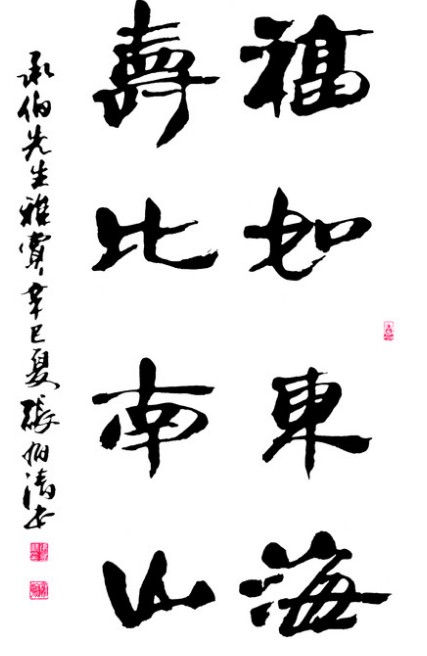 福如東海
壽比南山
承伯先生雅賞 辛巳夏 張伯濤書